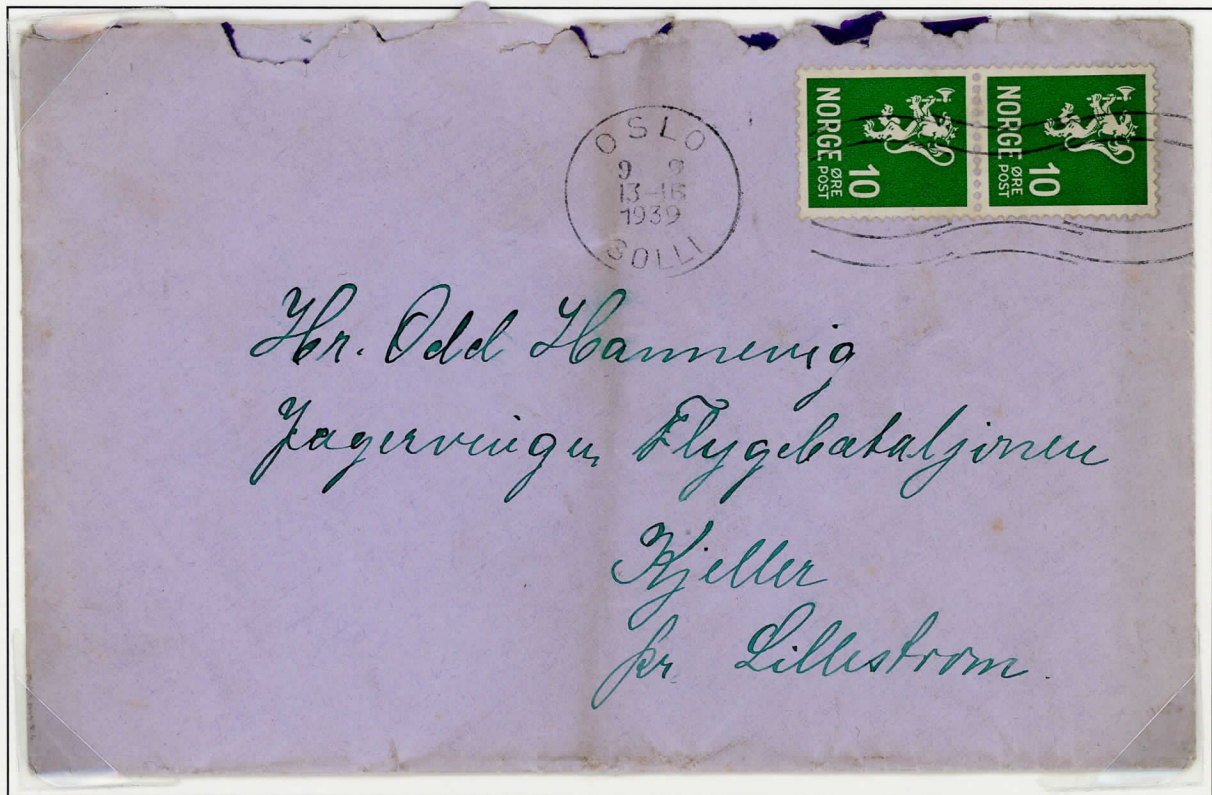 OSLO
9 9
13-16
1939
SOLLI
NORGE
10 ØRE
POST
NORGE
10 ØRE
POST
Hr. Odd Hannevig
Jagervingen Flygebataljonen
Kjeller
pr. Lillestrøm.